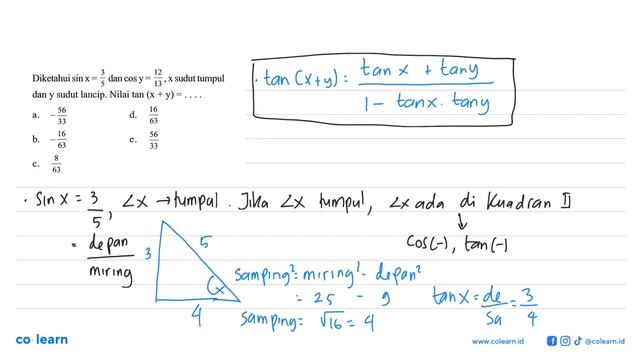 Diketahui sin x = 3/5 dan cos y = 12/13, x sudut tumpul
dan y sudut lancip. Nilai tan (x + y) = . . . .
a. -56/33
d. 16/63
b. -16/63
e. 56/33
c. 8/63
. tan(x+y) = (tan x + tan y)/(1 - tan x . tan y)
. Sin x = 3/5, ∠x → tumpul. Jika ∠x tumpul, ∠x ada di Kuadran II
↓
cos(-), tan(-)
= depan/miring
3
5
x
4
samping² = miring² - depan²
= 25 - 9
samping = √16 = 4
tan x = de/sa = 3/4
co·learn
www.colearn.id
@colearn.id